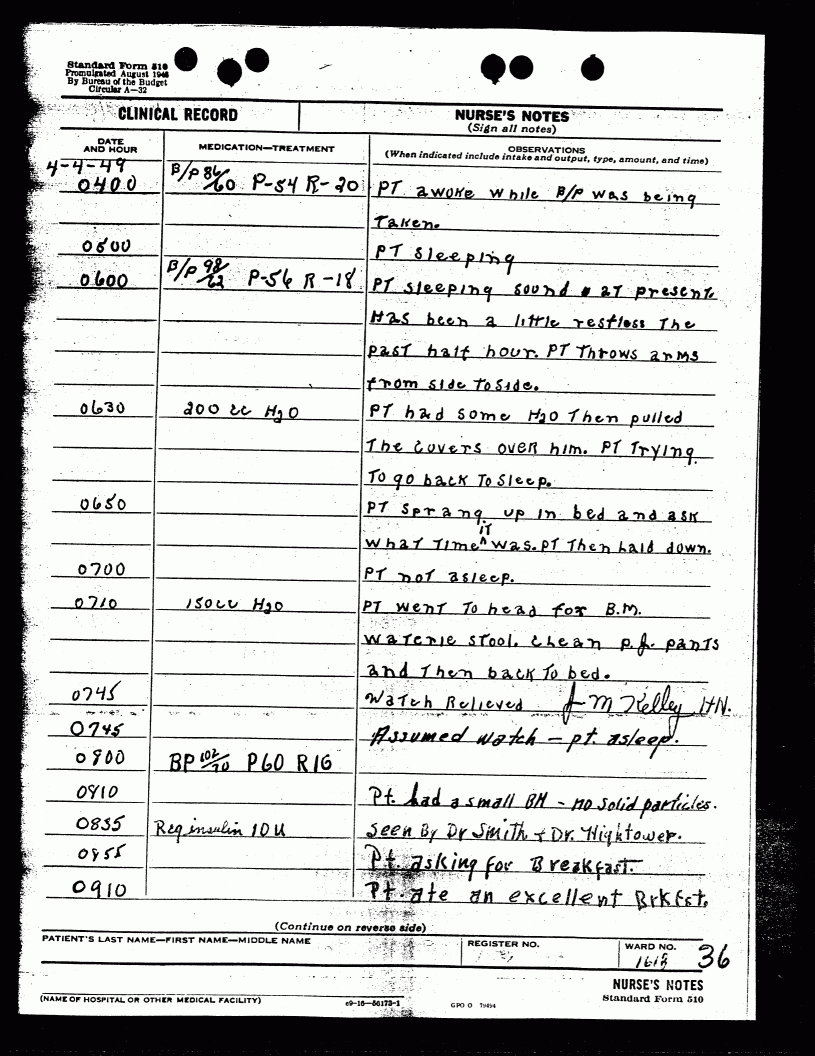 Standard Form 510
Promulgated August 1946
By Bureau of the Budget
Circular A—32
CLINICAL RECORD
NURSE'S NOTES
(Sign all notes)
DATE AND HOUR
MEDICATION—TREATMENT
OBSERVATIONS
(When indicated include intake and output, type, amount, and time)
4-4-49
0400 B/P 86/60 P-54 R-20 PT awoke while B/P was being
Taken.
0500 PT sleeping
0600 B/P 98/62 P-56 R-18 PT sleeping sound at present.
Has been a little restless The
past half hour. PT Throws arms
from side To side.
0630 200 cc H2O PT had some H2O Then pulled
The covers over him. PT Trying
To go back To sleep.
0650 PT sprang up in bed and ask
what Time it was. PT Then laid down.
0700 PT not asleep.
0710 150 cc H2O PT went To head for B.M.
waterie stool. clean p.j. pants
and Then back To bed.
0745 Watch Relieved J M Kelley HN.
0745 Assumed watch — pt. asleep.
0800 BP 102/70 P60 R16
0810 Pt. had a small BM - no solid particles.
0835 Reg insulin 10 U seen By Dr Smith + Dr. Hightower.
0855 Pt. asking for Breakfast.
0910 Pt. ate an excellent Brkfst.
(Continue on reverse side)
PATIENT'S LAST NAME—FIRST NAME—MIDDLE NAME
REGISTER NO.
WARD NO.
36
(NAME OF HOSPITAL OR OTHER MEDICAL FACILITY)
c9-16—56173-1
GPO O
NURSE'S NOTES
Standard Form 510